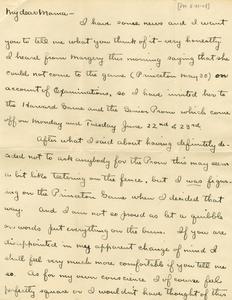 [PM 5-21-08]
My dear Mama—
I have some news and I want
you to tell me what you think of it - very honestly
I heard from Margery this morning saying that she
could not come to the game (Princeton May 30) on
account of Examinations, so I have invited her to
the Harvard Game and the Senior Prom which come
off on Monday and Tuesday June 22nd & 23rd.
After what I said about having definitely de-
cided not to ask anybody for the Prom this may seem
a bit like teetering on the fence, but I was figur-
ing on the Princeton Game when I decided that
way. And I am not so proud as let a quibble
on words put everything on the bum. If you are
disappointed in my apparent change of mind I
shall feel very much more comfortable if you tell me
so. As for my own conscience I of course feel
perfectly square or I wouldn't have thought of this